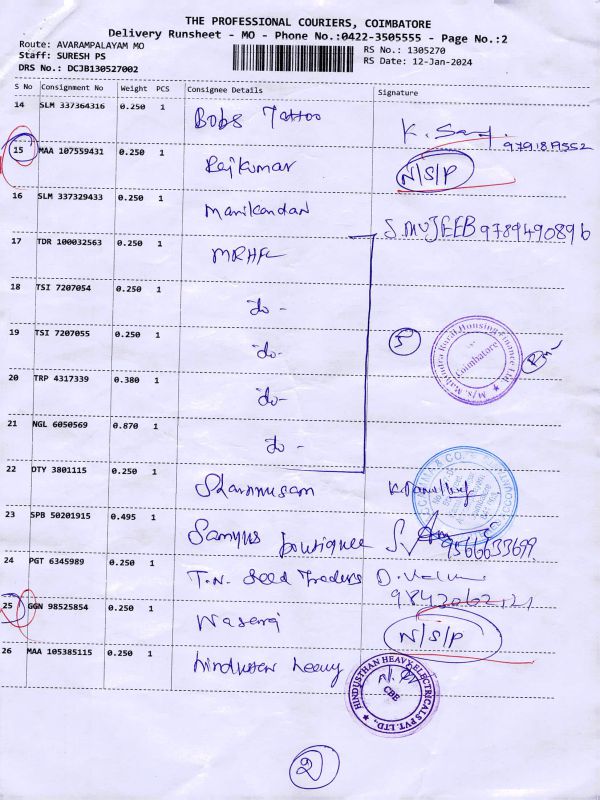 THE PROFESSIONAL COURIERS, COIMBATORE
Delivery Runsheet - MO - Phone No.:0422-3505555 - Page No.:2
Route: AVARAMPALAYAM MO
RS No.: 1305270
Staff: SURESH PS
RS Date: 12-Jan-2024
DRS No.: DCJB130527002
S No Consignment No Weight PCS Consignee Details Signature
14 SLM 337364316 0.250 1 Bobs Tattoo
15 MAA 107559431 0.250 1 Rajkumar N/S/P
16 SLM 337329433 0.250 1 Manikandan S.MUJEEB 9789490896
17 TDR 100032563 0.250 1 MRHFL
18 TSI 7207054 0.250 1 do -
19 TSI 7207055 0.250 1 do- 5
M/s. Mahindra Rural Housing Finance Ltd. Coimbatore
20 TRP 4317339 0.380 1 do-
21 NGL 6050569 0.870 1 do -
22 DTY 3801115 0.250 1
23 SPB 50201915 0.495 1 boutique 9566633699
24 PGT 6345989 0.250 1 T.N. Seed Traders
25 GGN 98525854 0.250 1 N/S/P
26 MAA 105385115 0.250 1 hindustan heavy
HINDUSTHAN HEAVY ELECTRICALS PVT. LTD. CBE
2